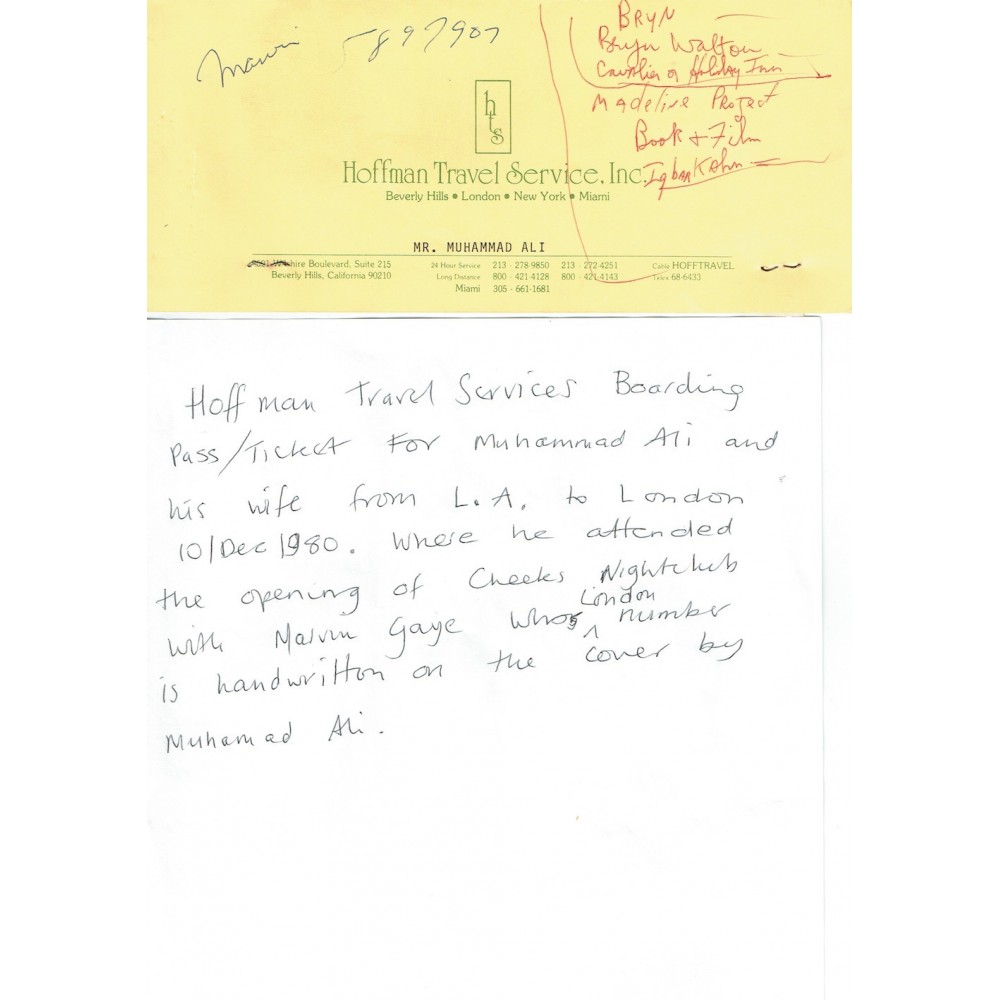 BRYN
Bryn Walton
Cavalier or Holiday Inn
Madeline Project
Book + Film
Iqbar Kahn
5897907
hts
Hoffman Travel Service, Inc.
Beverly Hills • London • New York • Miami
MR. MUHAMMAD ALI
hire Boulevard, Suite 215
Beverly Hills, California 90210
24 Hour Service 213 - 278-9850 213 - 272-4251
Long Distance 800 - 421-4128 800 - 421-4143
Miami 305 - 661-1681
Cable HOFFTRAVEL
Telex 68-6433
Hoffman Travel Services Boarding
Pass/Ticket For Muhammad Ali and
his wife from L.A. to London
10/Dec 1980. Where he attended
the opening of Cheeks Nightclub
with Marvin Gaye whos London number
is handwritton on the cover by
Muhamad Ali.